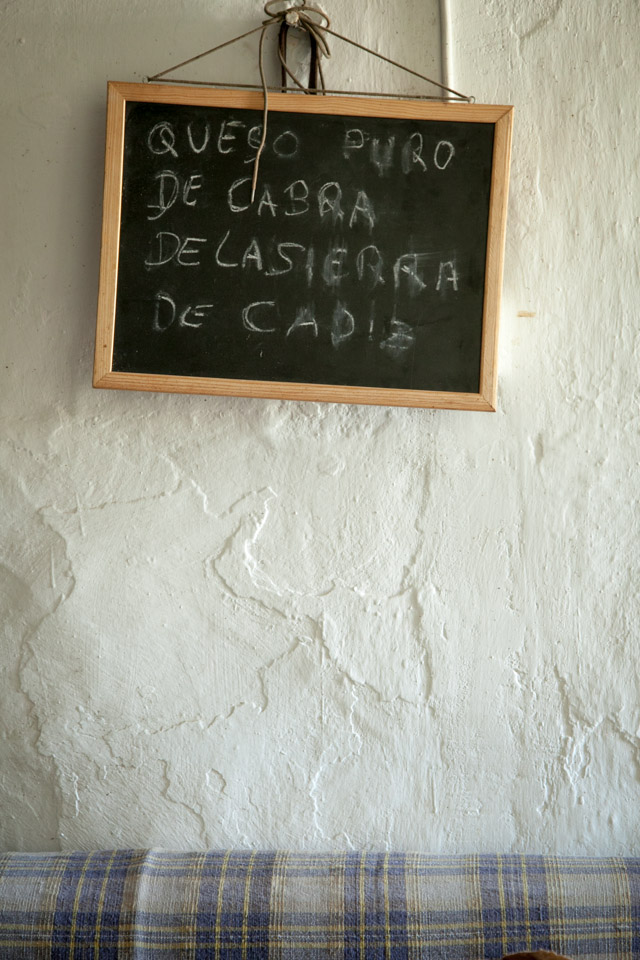 QUESO PURO
DE CABRA
DE LA SIERRA
DE CADIZ